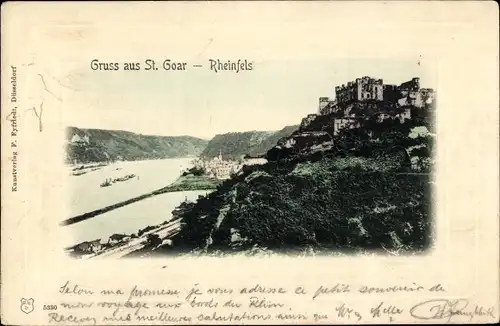 Gruss aus St. Goar – Rheinfels
Kunstverlag F. Eyfriedt, Düsseldorf
5380
Selon ma promesse, je vous adresse ce petit souvenir de
mon voyage aux bords du Rhin.
Recevez mes meilleures salutations ainsi que